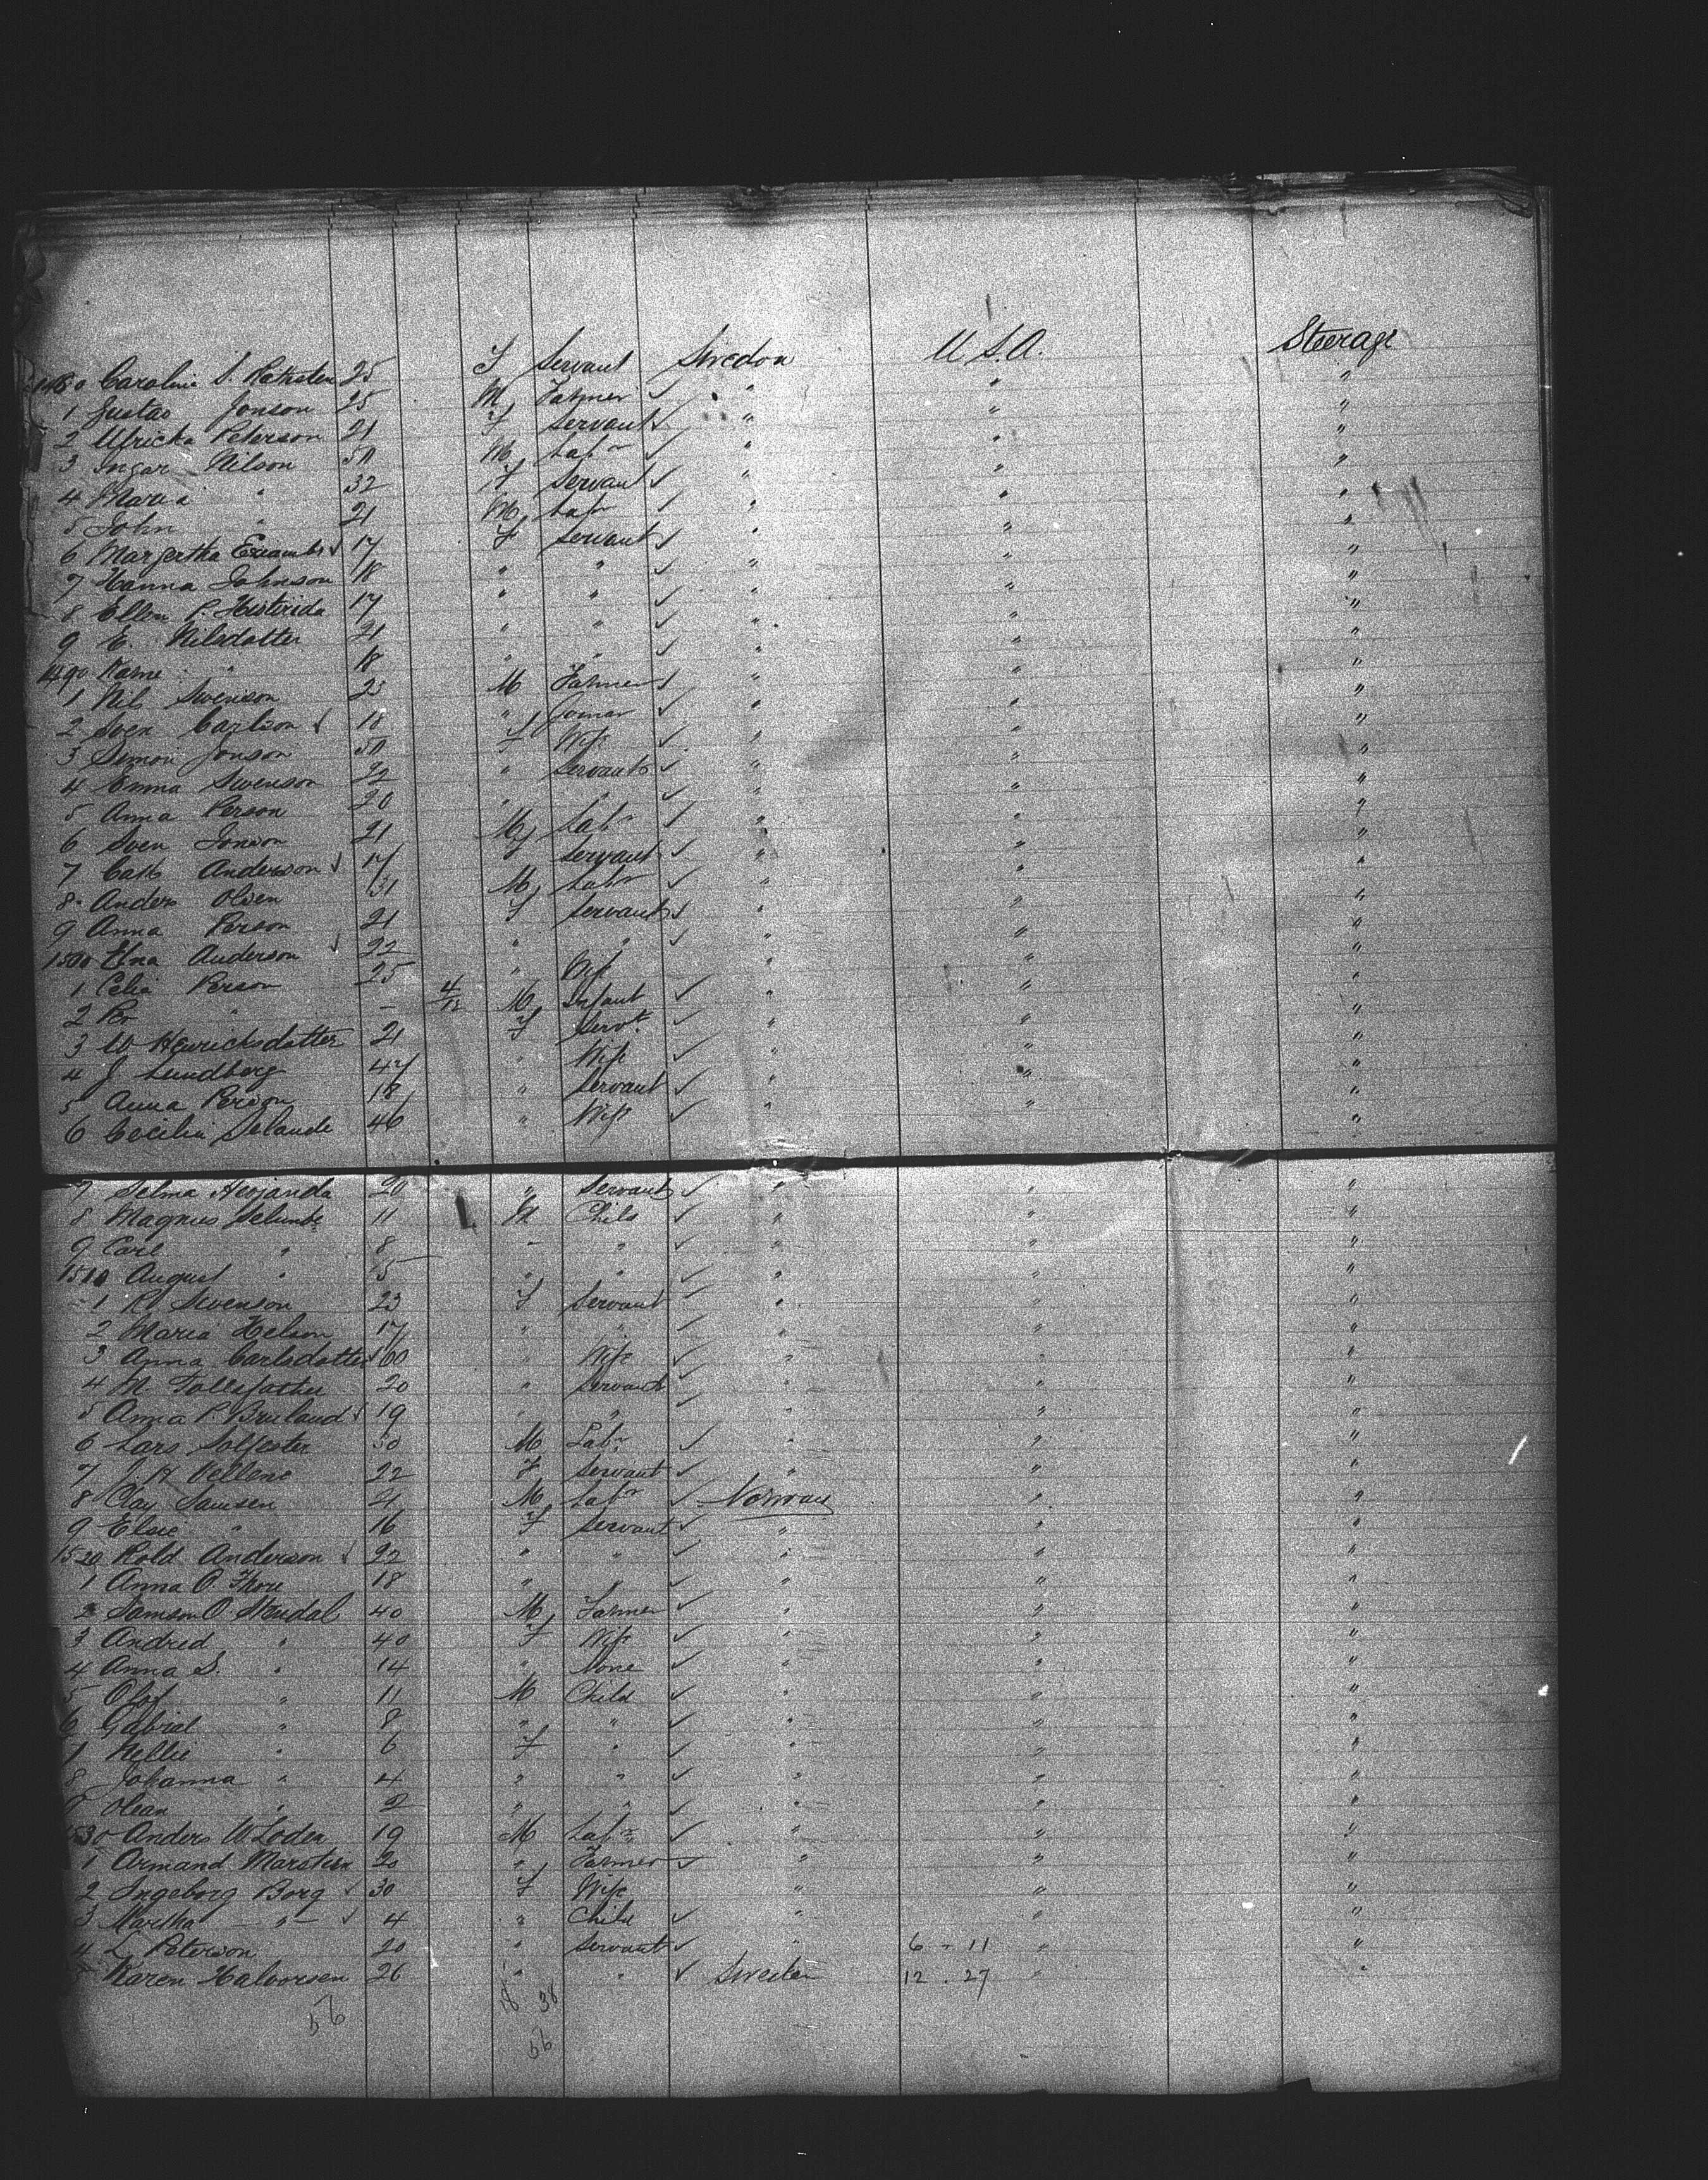 1480 Caroline S. 25 F Servant Sweden U.S.A. Steerage
1 Gustav Jonson 25 M Farmer ✓ " " "
2 Ulricka Peterson 21 F Servant ✓ " " "
3 Ingar Nilson 50 M Labr ✓ " " "
4 Maria " 32 F Servant ✓ " " "
5 John " 21 M Labr ✓ " " "
6 Margertha ✓ 17 F Servant ✓ " " "
7 Hanna Johnson 18 " " ✓ " " "
8 Ellen P. 17 " " ✓ " " "
9 E. Nilsdatter 21 " " ✓ " " "
1490 " 18 " " ✓ " " "
1 Nil Swenson 23 M Farmer ✓ " " "
2 Sven Carlson ✓ 18 " ✓ " " "
3 Simon Jonson 50 F Wife ✓ " " "
4 Emma Swenson 22 " Servant ✓ " " "
5 Anna Person 20 " " ✓ " " "
6 Sven Jonson 21 M Labr ✓ " " "
7 Anderson ✓ 17 F Servant ✓ " " "
8 Anders Olsen 31 M Labr ✓ " " "
9 Anna Person 21 F Servant ✓ " " "
1500 Elna Anderson ✓ 22 " " ✓ " " "
1 Celia Person 25 " Wife " " "
2 Per " - 4/12 M Infant ✓ " " "
3 W Henricksdatter 21 F Servt. ✓ " " "
4 J Lundberg 47 " Wife ✓ " " "
5 Anna Person 18 " Servant ✓ " " "
6 Cecilia 46 " Wife ✓ " " "
7 Selma 20 " Servant ✓ " " "
8 Magnus 11 M Child ✓ " " "
9 Carl " 8 " " ✓ " " "
1510 August " 5 " " ✓ " " "
1 Swenson 23 F Servant ✓ " " "
2 Maria 17 " " ✓ " " "
3 Anna Carlsdatter 60 " Wife ✓ " " "
4 N. 20 " Servant ✓ " " "
5 Anna P. Bruland ✓ 19 " " ✓ " " "
6 Lars 50 M Labr ✓ " " "
7 J. H 22 F Servant ✓ " " "
8 Samsen 21 M Labr ✓ Norway " "
9 Elsie " 16 F Servant ✓ " " "
1520 Rold Anderson ✓ 22 " " ✓ " " "
1 Anna O. Thore 18 " " ✓ " " "
2 Samson O. Stendal 40 M Farmer ✓ " " "
3 Andred " 40 F Wife ✓ " " "
4 Anna S. " 14 " None ✓ " " "
5 Olof " 11 M Child ✓ " " "
6 Gabriel " 8 " " ✓ " " "
7 Nellie " 6 F " ✓ " " "
8 Johanna " 4 " " ✓ " " "
9 Olean " 2 " " ✓ " " "
1530 Anders W Loden 19 M Labr ✓ " " "
1 Armand Marsten 20 " Farmer ✓ " " "
2 Ingeborg Borg ✓ 30 F Wife " " "
3 Martha " ✓ 4 " Child ✓ " " "
4 L Peterson 20 " Servant ✓ " 6 - 11 " "
5 Karen Halvorsen 26 " " ✓ Sweden 12 . 27 " "
56 18 38
56